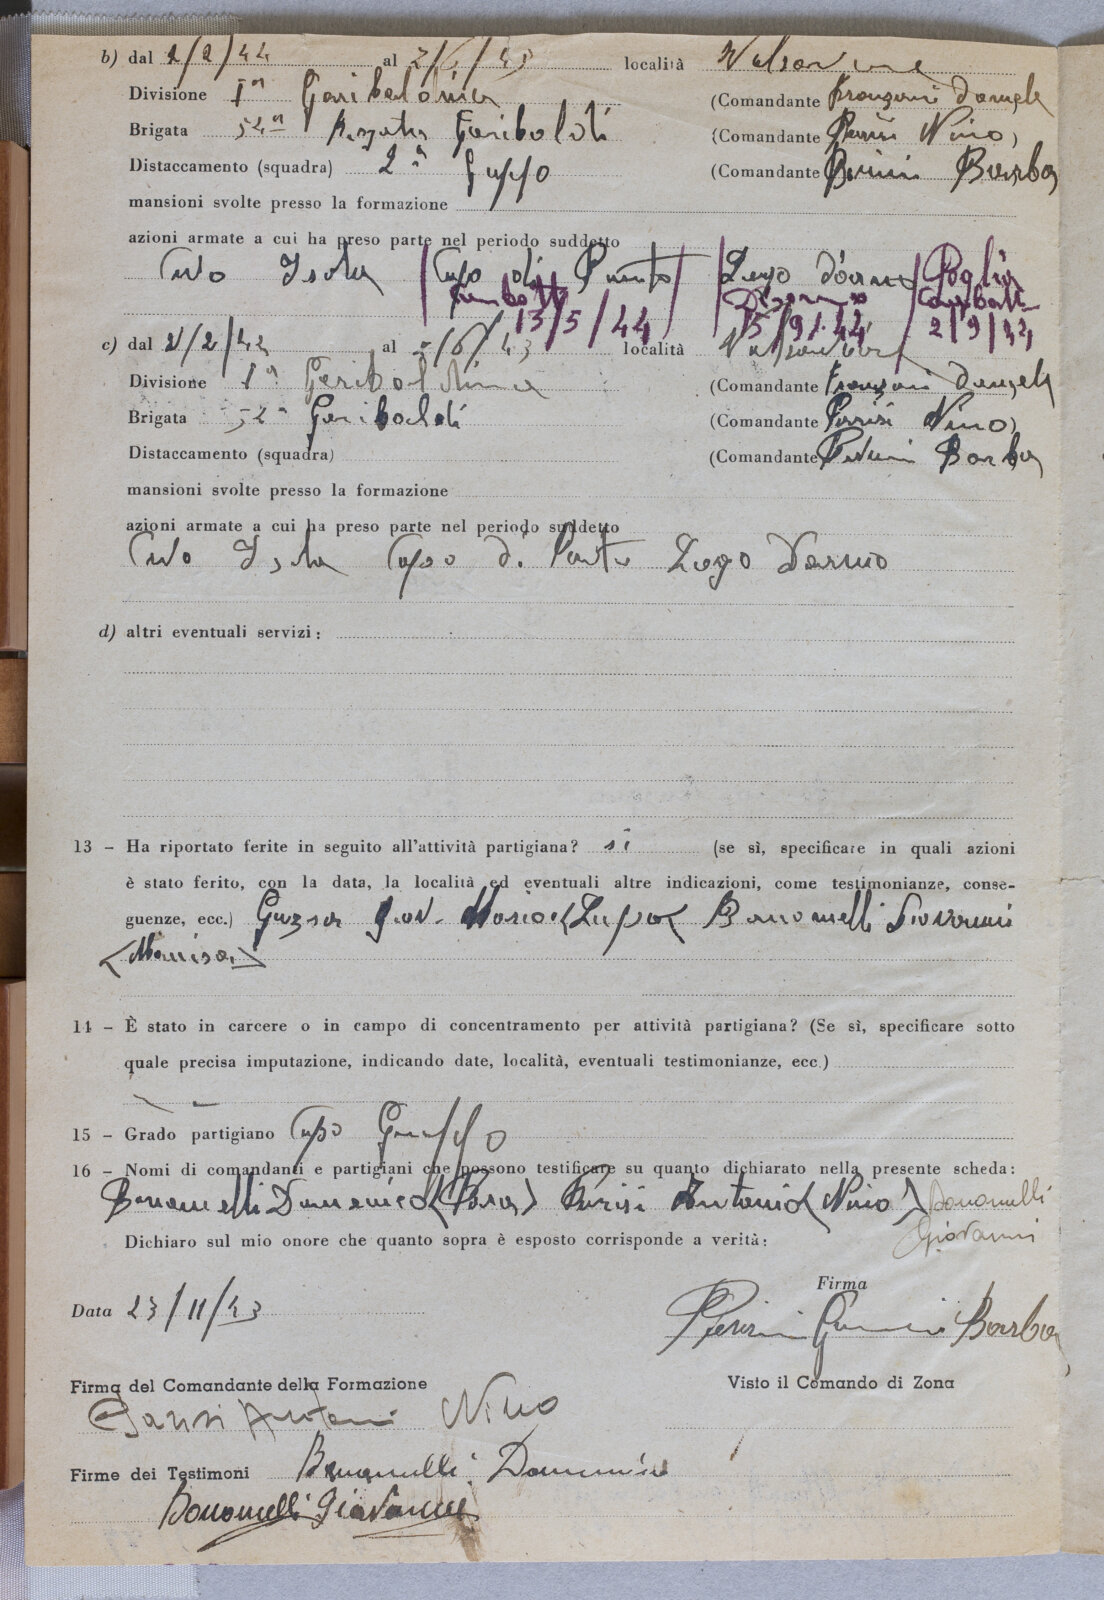 b) dal 2/2/44 al località
Divisione Iª Garibaldina (Comandante Franzoni Daniele
Brigata 54ª Garibaldi (Comandante Parisi Nino)
Distaccamento (squadra) 2ª Guppo (Comandante Barba
mansioni svolte presso la formazione
azioni armate a cui ha preso parte nel periodo suddetto
Civo Isola Capo di Punto Lego d'arno Poglia
13/5/44 15/9/44 2/9/44
c) dal al località
Divisione Iª Garibaldina (Comandante Franzoni Daniele
Brigata 54ª Garibaldi (Comandante Parisi Nino)
Distaccamento (squadra) (Comandante Barba
mansioni svolte presso la formazione
azioni armate a cui ha preso parte nel periodo suddetto
Civo Isola Capo di Ponte Lego Darno
d) altri eventuali servizi:
13 – Ha riportato ferite in seguito all'attività partigiana? si (se sì, specificare in quali azioni
è stato ferito, con la data, la località ed eventuali altre indicazioni, come testimonianze, conse-
guenze, ecc.) Giov. Maria (Lupo( Bonomelli Giovanni
(Marisa)
14 – È stato in carcere o in campo di concentramento per attività partigiana? (Se sì, specificare sotto
quale precisa imputazione, indicando date, località, eventuali testimonianze, ecc.)
15 – Grado partigiano Capo Guppo
16 – Nomi di comandanti e partigiani che possono testificare su quanto dichiarato nella presente scheda:
Bonomelli Domenico Parisi Antonio (Nino) Bonomelli
Giovanni
Dichiaro sul mio onore che quanto sopra è esposto corrisponde a verità:
Firma
Data 23/11/45
Barba
Firma del Comandante della Formazione Visto il Comando di Zona
Parisi Antonio Nino
Firme dei Testimoni Bonomelli Domenico
Bonomelli Giovanni